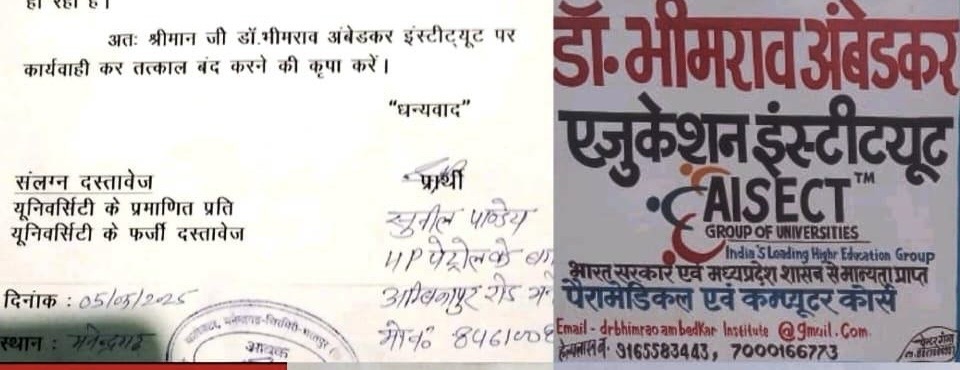 हो रहा है।
अतः श्रीमान जी डॉ.भीमराव अंबेडकर इंस्टीट्यूट पर
कार्यवाही कर तत्काल बंद करने की कृपा करें।
"धन्यवाद"
संलग्न दस्तावेज
यूनिवर्सिटी के प्रमाणित प्रति
यूनिवर्सिटी के फर्जी दस्तावेज
प्रार्थी
सुनील पाण्डेय
HP पेट्रोल के
अम्बिकापुर रोड
मो.नं. 8461008
दिनांक : 05/05/2025
स्थान : मनेन्द्रगढ़
आवक
डॉ. भीमराव अंबेडकर
एजुकेशन इंस्टीटयूट
AISECT™
GROUP OF UNIVERSITIES
India'S Leading Highr Education Group
भारत सरकार एवं मध्यप्रदेश शासन से मान्यता प्राप्त
पैरामेडिकल एवं कम्प्यूटर कोर्स
Email - drbhimrao ambedKar Institute @gmail.Com.
हेल्पलाइन नं. 9165583443, 7000166773